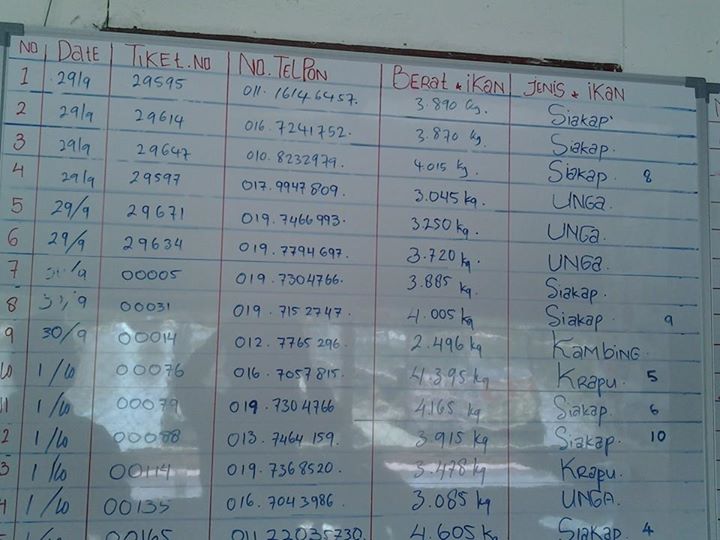 NO Date TIKET.NO NO.TELPON BERAT * IKAN JENIS * IKAN
1 29/9 29595 011.16146457. 3.890 kg. Siakap.
2 29/9 29614 016.7241752. 3.870 kg. Siakap.
3 29/9 29647 010.8232979. 4.015 kg. Siakap 8
4 29/9 29597 017.9947809. 3.045 kg. UNGA
5 29/9 29671 019.7466993. 3250 kg. UNGa.
6 29/9 29634 019.7794697. 3.720 kg. UNGa
7 00005 019.7304766. 3.885 kg. Siakap.
8 00031 019.7152747. 4.005 kg Siakap. 9
9 30/9 00014 012.7765296. 2.496 kg KAMBING.
10 1/10 00076 016.7057815. 4.395 kg Krapu. 5
11 1/10 00079 019.7304766 4.165 kg Siakap 6
2 1/10 00088 013.7464159. 3.915 kg Siakap. 10
3 1/10 00114 019.7368520. 3.478 kg Krapu.
4 1/10 00135 016.7043986. 3.085 kg UNGA.
00165 011.22035730. 4.605 k Siakap. 4